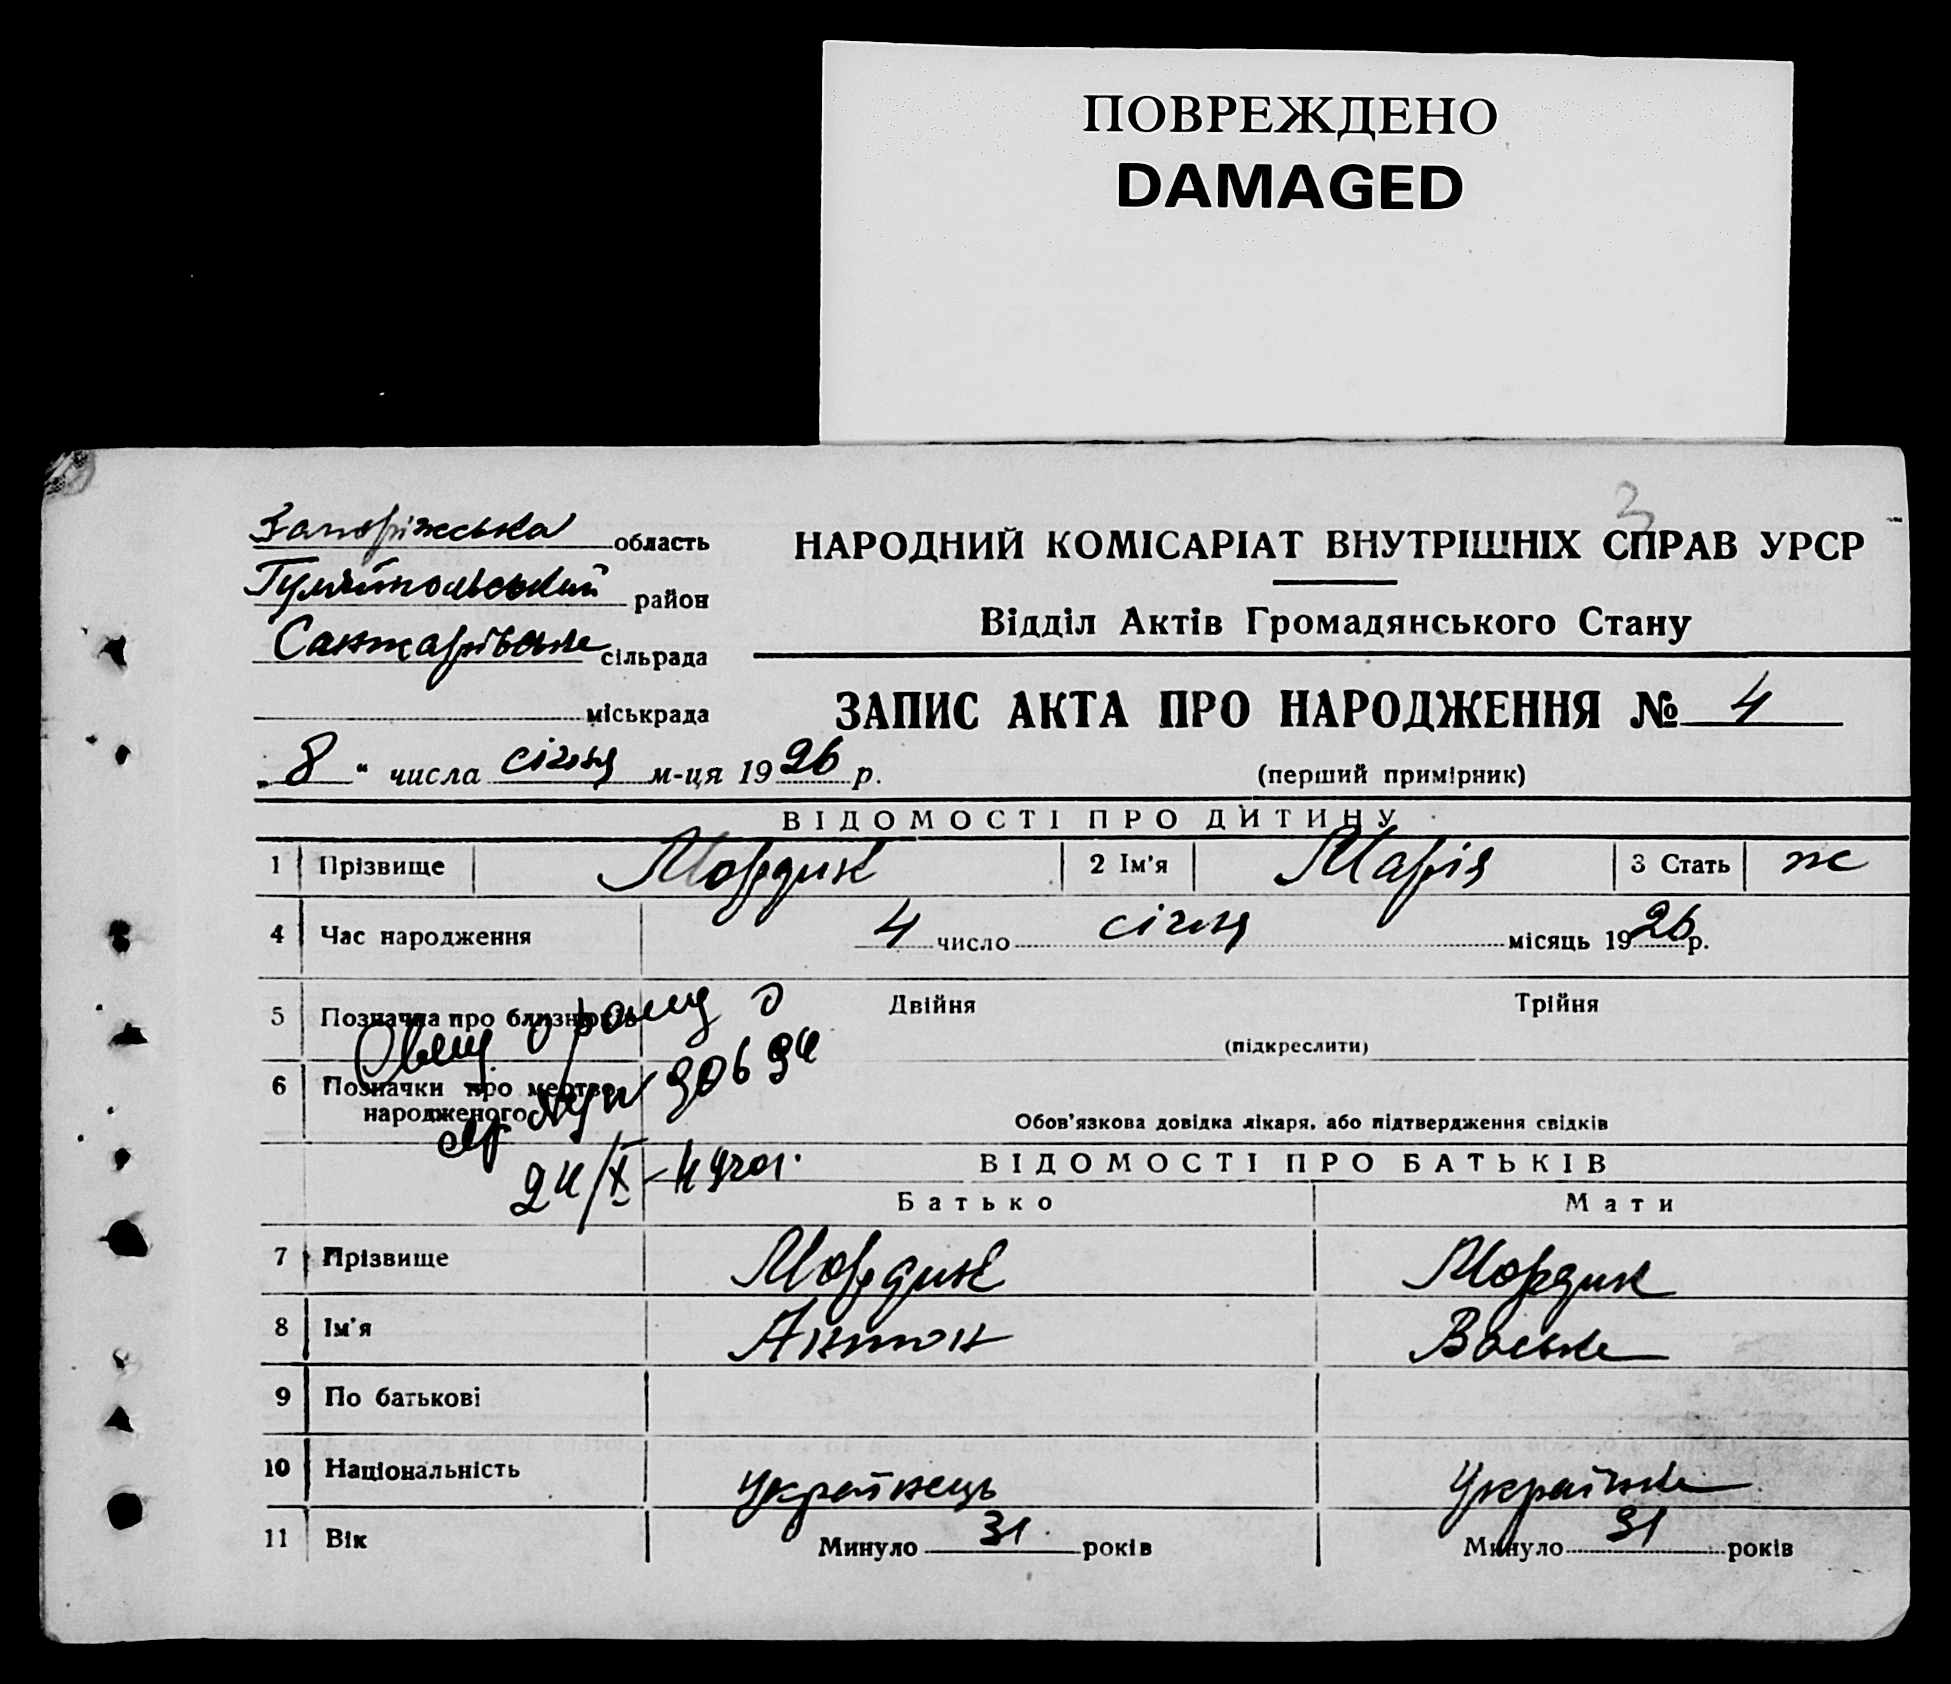 ПОВРЕЖДЕНО
DAMAGED
3
Запоріжська область
НАРОДНИЙ КОМІСАРІАТ ВНУТРІШНІХ СПРАВ УРСР
Гуляйпольський район
Відділ Актів Громадянського Стану
Санжарівське сільрада
міськрада
ЗАПИС АКТА ПРО НАРОДЖЕННЯ № 4
„ 8 “ числа січня м-ця 1926 р.
(перший примірник)
ВІДОМОСТІ ПРО ДИТИНУ
1 Прізвище Мордик 2 Ім'я Марія 3 Стать ж
4 Час народження 4 число січня місяць 1926 р.
5 Позначка про близнюків Двійня Трійня
(підкреслити)
6 Позначки про мертво-
народженого
Обов'язкова довідка лікаря, або підтвердження свідків
ВІДОМОСТІ ПРО БАТЬКІВ
Батько Мати
7 Прізвище Мордик Мордик
8 Ім'я Антон
9 По батькові
10 Національність Українець Українка
11 Вік Минуло 31 років Минуло 31 років